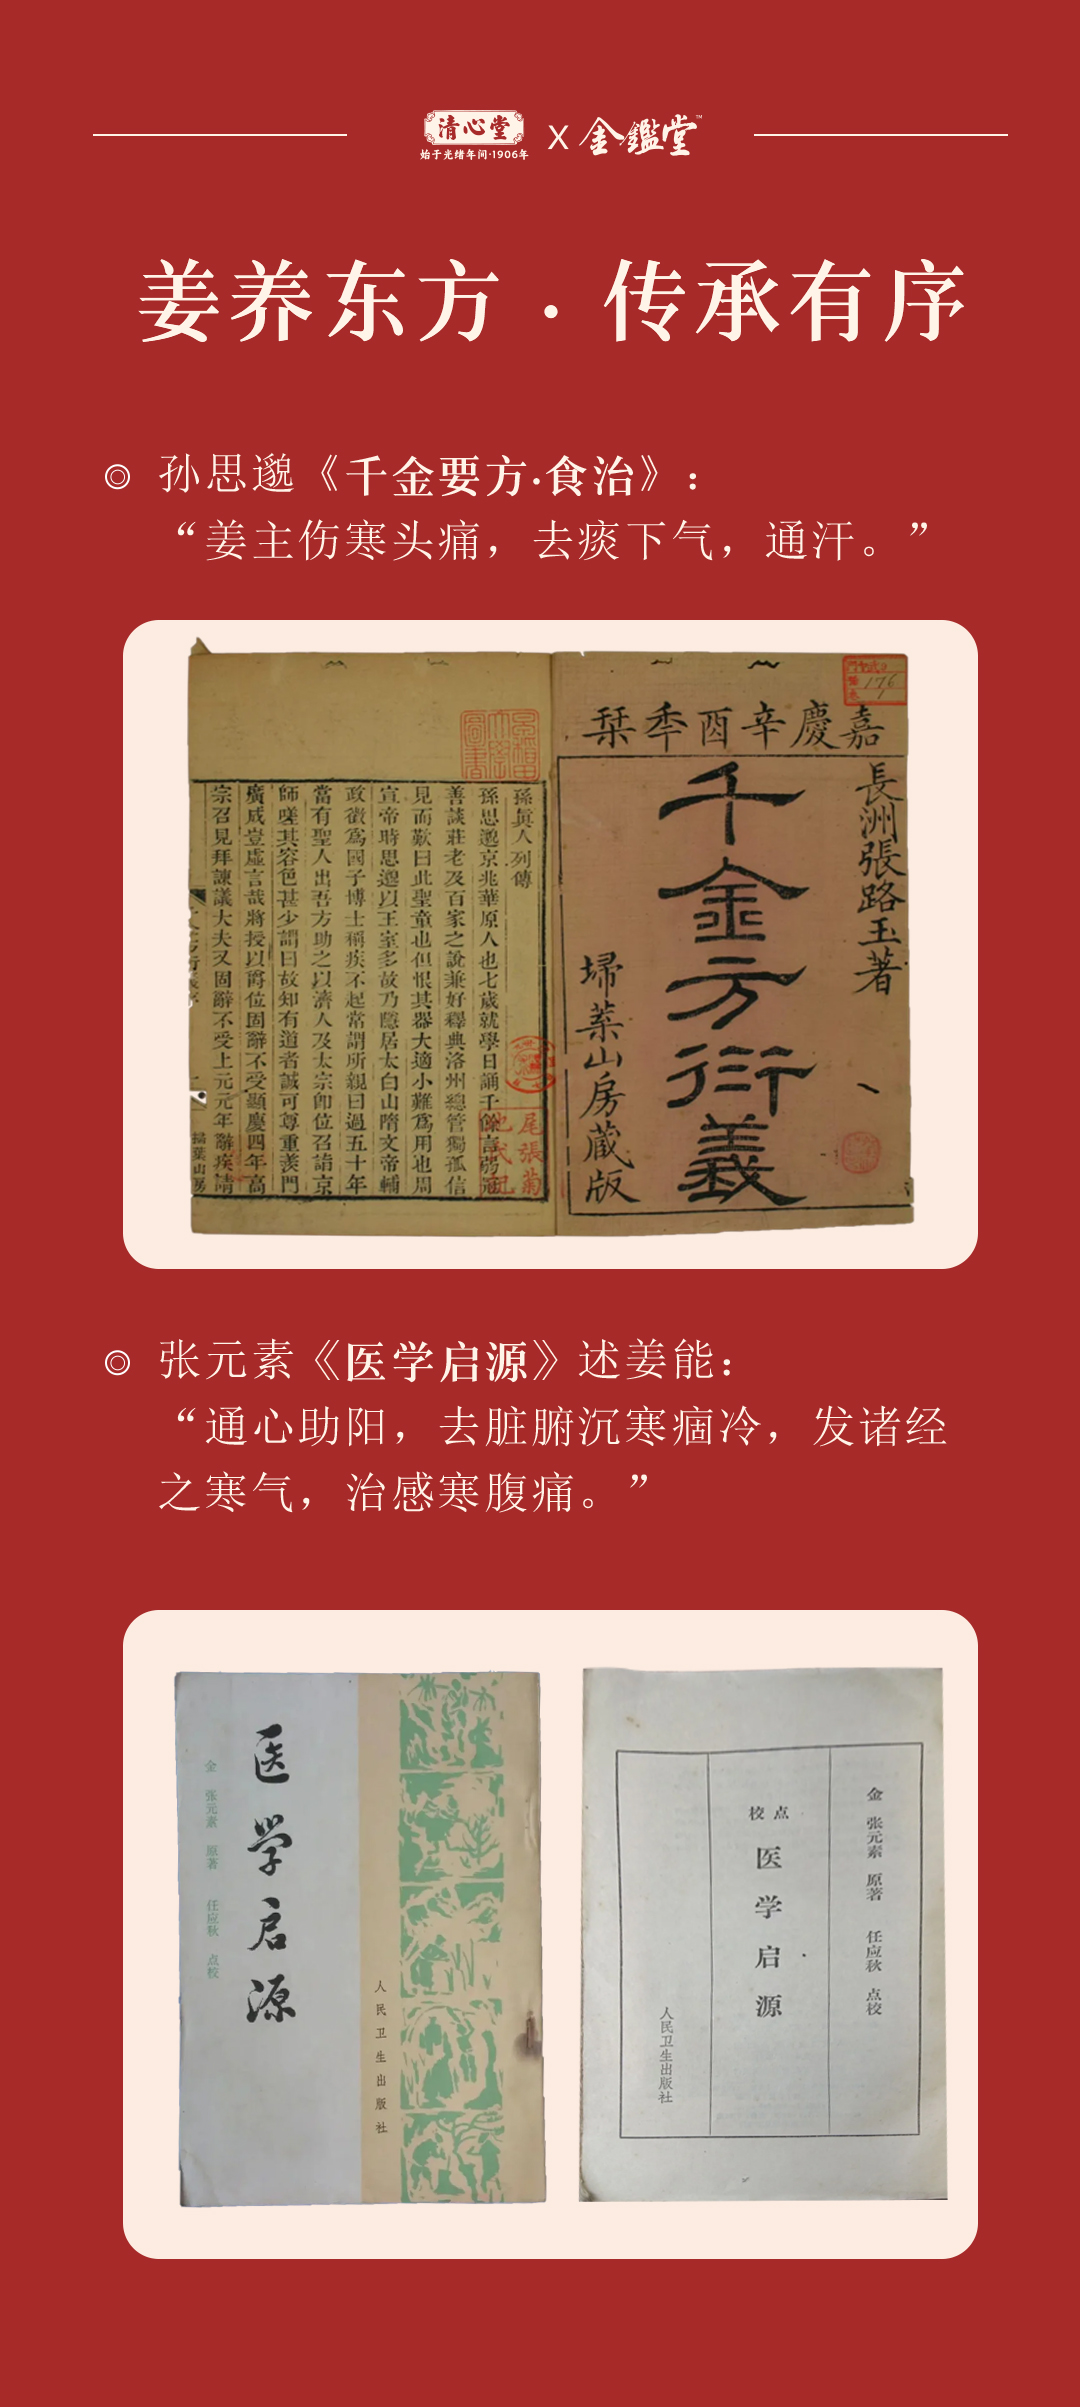 清心堂
始于光绪年间·1906年
X
金鑑堂™
姜养东方·传承有序
孙思邈《千金要方·食治》：
“姜主伤寒头痛，去痰下气，通汗。”
嘉慶辛酉秊栞
長洲張路玉著
千金方衍義
埽葉山房藏版
176
1
孫真人列傳
孫思邈京兆華原人也七歲就學日誦千餘言弱冠
善談莊老及百家之說兼好釋典洛州總管獨孤信
見而歎曰此聖童也但恨其器大適小難爲用也周
宣帝時思邈以王室多故乃隱居太白山隋文帝輔
政徵爲國子博士稱疾不起常謂所親曰過五十年
當有聖人出吾方助之以濟人及太宗卽位召詣京
師嗟其容色甚少謂曰故知有道者誠可尊重羨門
廣成豈虛言哉將授以爵位固辭不受顯慶四年高
宗召見拜諫議大夫又固辭不受上元元年辭疾請
掃葉山房
张元素《医学启源》述姜能：
“通心助阳，去脏腑沉寒痼冷，发诸经
之寒气，治感寒腹痛。”
医学启源
金 张元素 原著 任应秋 点校
人民卫生出版社
金 张元素 原著 任应秋 点校
点校
医学启源
人民卫生出版社